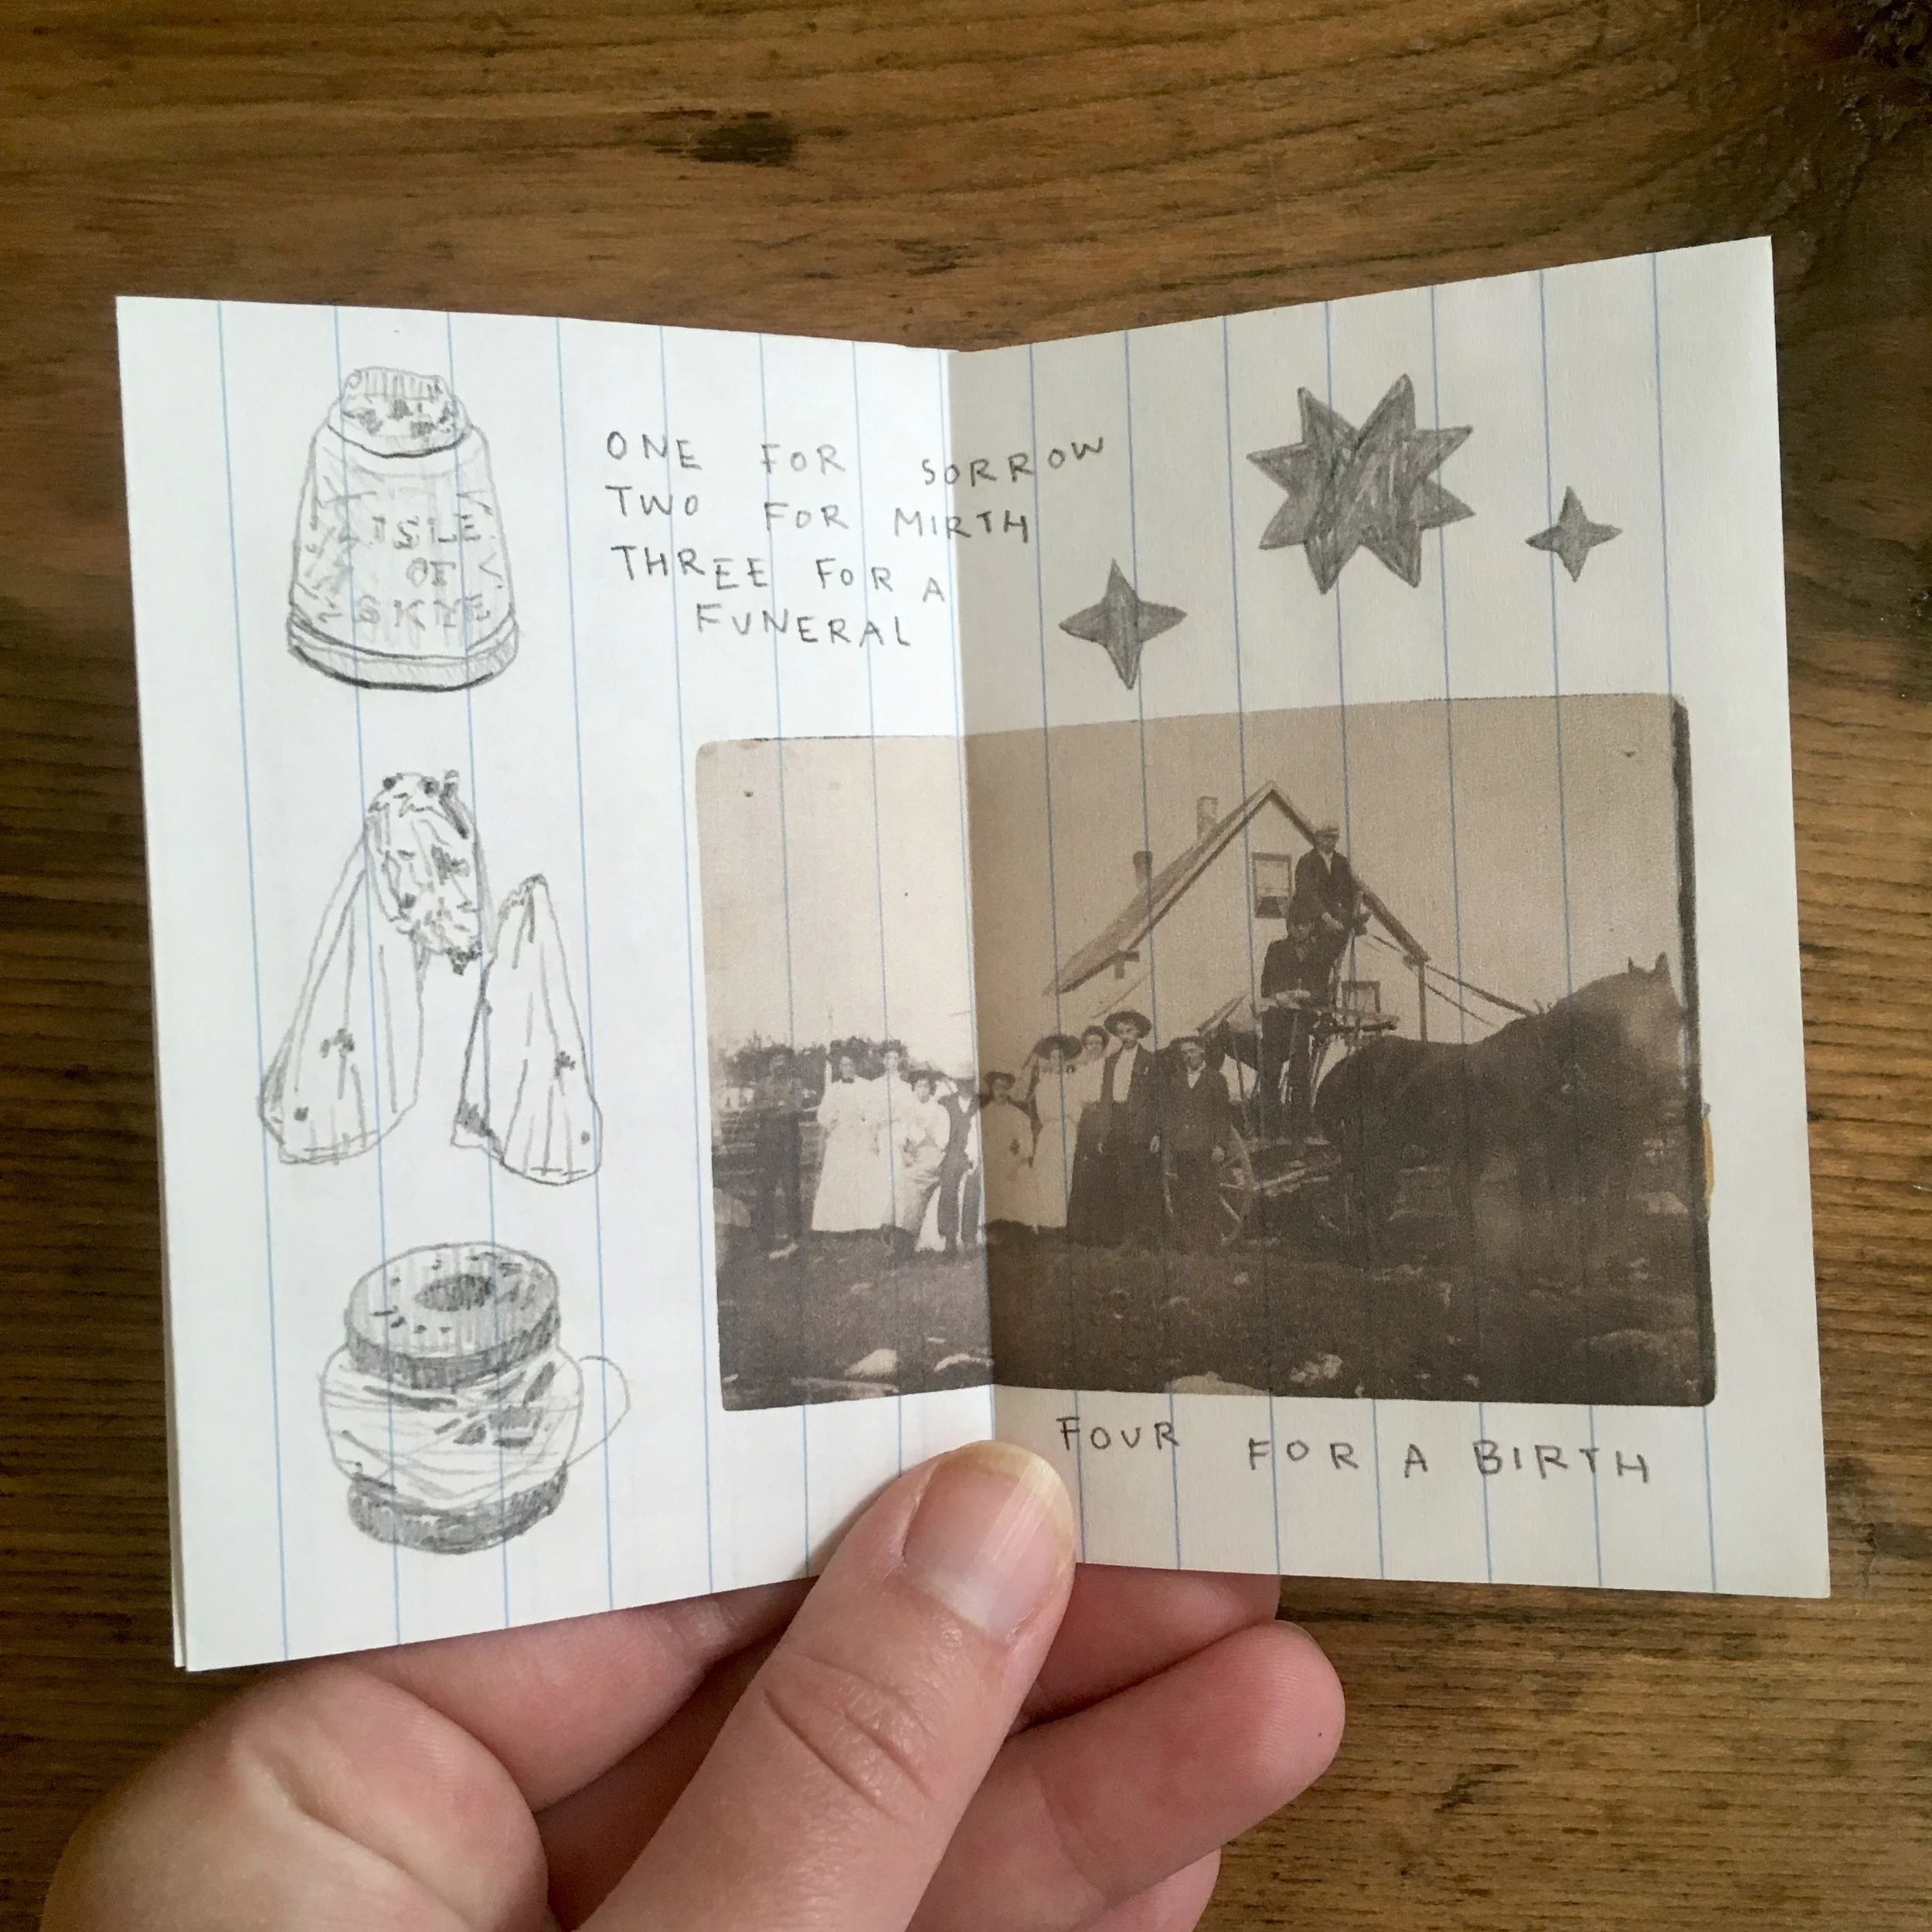 ISLE
OF
SKYE
ONE FOR SORROW
TWO FOR MIRTH
THREE FOR A
FUNERAL
FOUR FOR A BIRTH